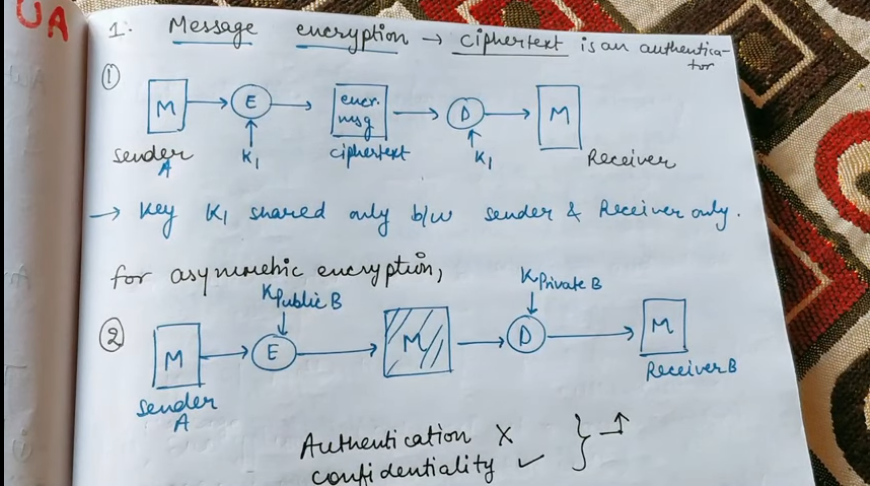 UA
1. Message encryption → ciphertext is an authentica-
tor
①
M → E → encr. msg → D → M
Sender A K1 ciphertext K1 Receiver
→ Key K1 shared only b/w sender & Receiver only.
for asymmetric encryption,
KPublic B KPrivate B
② M → E → M → D → M
Sender A Receiver B
Authentication X
confidentiality ✓